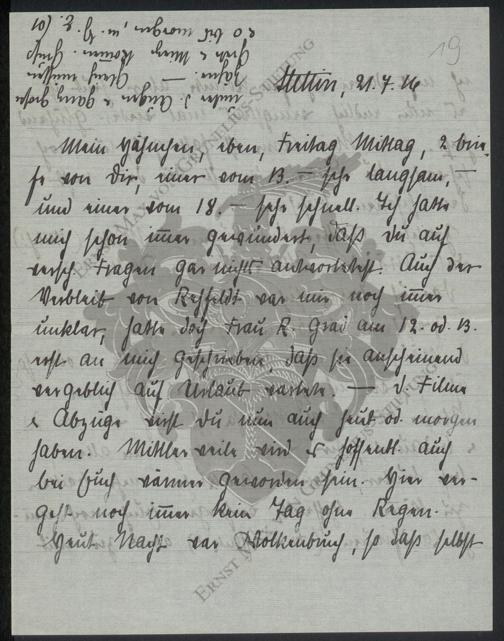 19
Stettin, 21.7.16
Mein Hähnchen, eben, Freitag Mittag, 2 Brie-
fe von Dir, einer vom 13. — sehr langsam, —
und einer vom 18. — sehr schnell. Ich hatte
mich schon immer gewundert, daß Du auf
versch. Fragen gar nicht antwortetest. Auch der
Verbleib von Rehfeldt war mir noch immer
unklar, hatte doch Frau R. grad am 12. od. 13.
erst an mich geschrieben, daß sie anscheinend
vergeblich auf Urlaub wartete. — d. Filme
& Abzüge wirst Du nun auch heut od. morgen
haben. Mittlerweile wird es hoffentl. auch
bei Euch wärmer geworden sein. Hier ver-
geht noch immer kein Tag ohne Regen.
Heut Nacht war Wolkenbruch, so daß selbst
unter d. Augen & ganz große
ERNST MAX VON GRUNELIUS-STIFTUNG
ERNST MAX VON GRUNELIUS-STIFTUNG